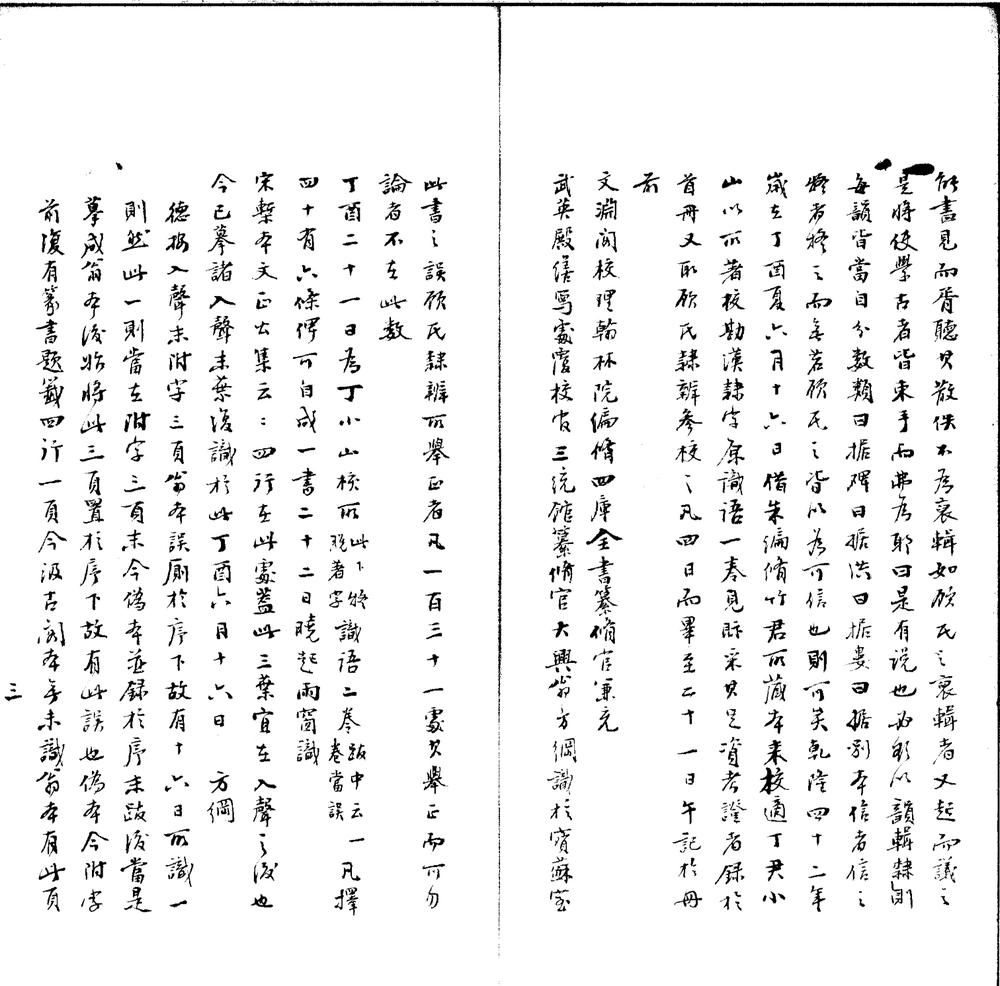 能書見而胥聽其散佚不為裒輯如顧氏之裒輯者又起而議之
是將使學古者皆束手而弗為耶曰是有說也必欲以韻輯隸則
每韻皆當目分數類曰據碑曰據洪曰據婁曰據別本信者信之
疑者疑之而無若顧氏之皆以為可信也則可矣乾隆四十二年
歲在丁酉夏六月十六日借朱編脩竹君所藏本来校適丁尹小
山以所著校勘漢隸字原識語一卷見眎采其足資考證者録於
首冊又取顧氏隸辨參校之凡四日而畢至二十一日午記於冊
前
文淵閣校理翰林院編脩四庫全書纂脩官兼充
武英殿繕寫處覆校官三統館纂脩官大興翁方綱識於寳蘇室
此書之誤顧氏隸辨所舉正者凡一百三十一處其舉正而可勿
論者不在此數
丁酉二十一日為丁小山校所此下疑脫者字識語二卷跋中云一卷當誤凡擇
四十有六條得可自成一書二十二日曉起雨窗識
宋槧本文正公集云云四行在此處葢此三葉宜在入聲之後也
今已摹諸入聲末葉後識於此丁酉六月十六日 方綱
德按入聲末附字三頁翁本誤厠於序下故有十六日所識一
則然此一則當在附字三頁末今偽本並録於序末跋後當是
摹成翁本後始將此三頁置於序下故有此誤也偽本今附字
前復有篆書題籤四行一頁今汲古閣本無未識翁本有此頁
三